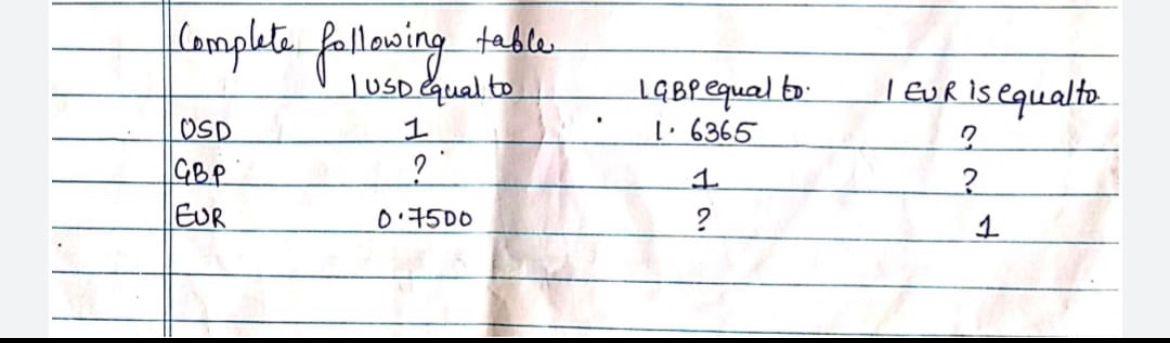 Complete following table
1 USD equal to 1 GBP equal to 1 EUR is equal to
USD 1 1.6365 ?
GBP ? 1 ?
EUR 0.7500 ? 1